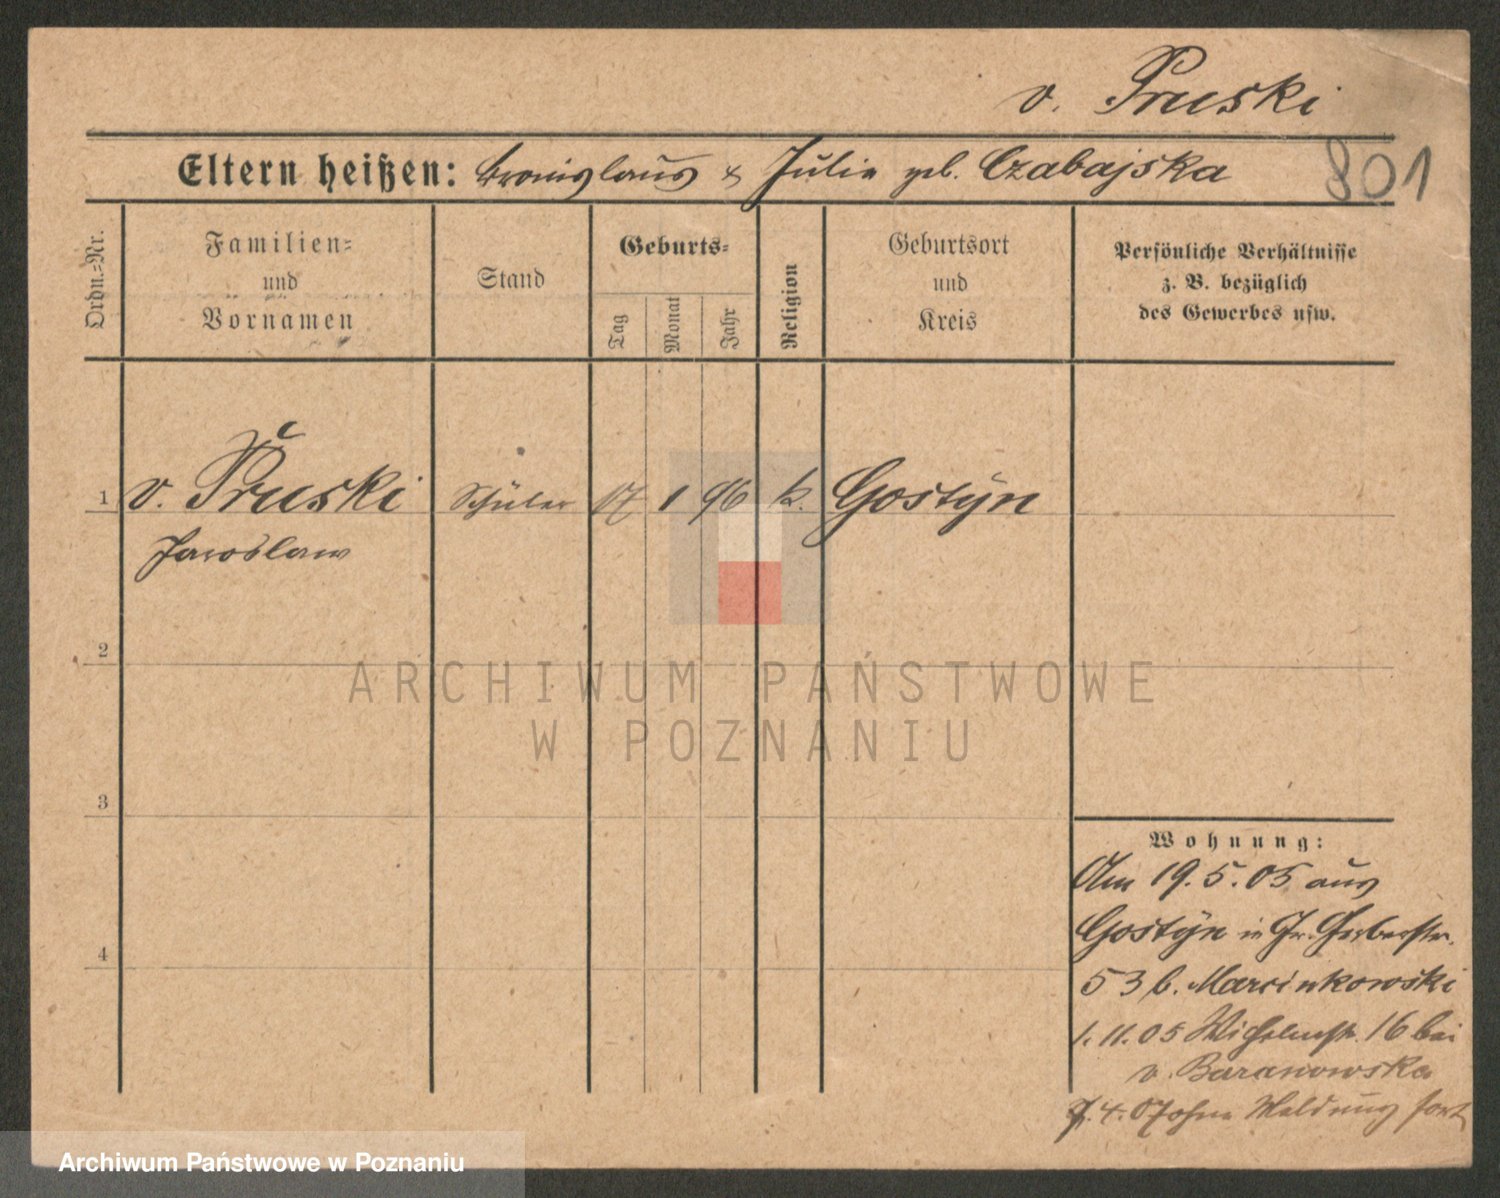 v. Pruski
Eltern heißen: Bronislaus & Julie geb. Czabajska
801
Ordn.-Nr.
Familien-
und
Vornamen
Stand
Geburts-
Tag
Monat
Jahr
Religion
Geburtsort
und
Kreis
Persönliche Verhältnisse
z. B. bezüglich
des Gewerbes usw.
1 v. Pruski Schüler 17 1 96 k. Gostyn
Jaroslaw
2
3
4
Wohnung:
Am 19.5.05 aus
Gostyn in Gr. Gerberstr.
53 b. Marcinkowski
1.11.05 Wilhelmstr. 16 bei
v. Baranowska
4.07 ohne Meldung fort
ARCHIWUM PAŃSTWOWE
W POZNANIU
Archiwum Państwowe w Poznaniu